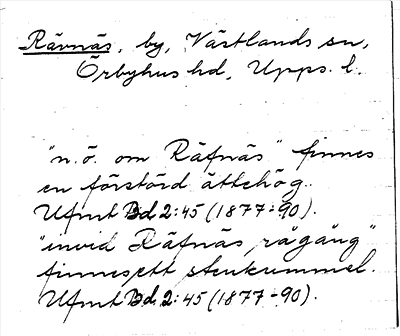 Rävnäs, by, Västlands sn,
Örbyhus hd, Upps. l.
"n.ö. om Räfnäs" finnes
en förstörd ättehög.
Ufmt Bd 2:45 (1877-90).
"invid Räfnäs rågång"
finnes ett stenkummel.
Ufmt Bd. 2:45 (1877-90).